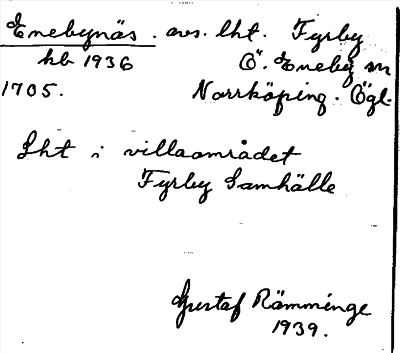 Enebynäs. avs. lht. Fyrby
kb 1936 Ö. Eneby sn
1705. Norrköping. Ögl.
Lht i villaområdet
Fyrby Samhälle
Gustaf Rämminge
1939.